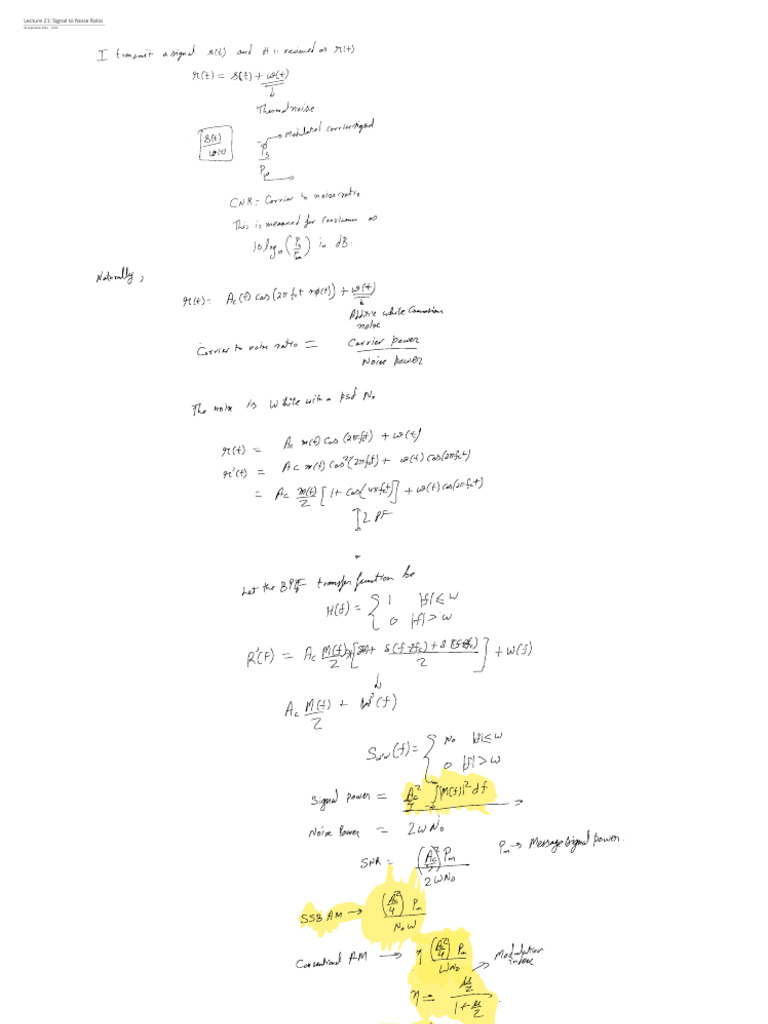 Lecture 21: Signal to Noise Ratio
I transmit a signal s(t) and it is received as r(t)
r(t) = s(t) + w(t)
Thermal noise
s(t)
w(t)
Modulated carrier signal
Ps
CNR = Carrier to noise ratio
This is measured for as
10 log10 (Ps/Pm) in dB.
Naturally,
r(t) = Ac(t) cos(2πfct + φ(t)) + w(t)
Additive white Gaussian
noise
Carrier to noise ratio = Carrier power
Noise power
The noise is white with a psd N0
r(t) = Ac m(t) cos(2πfct) + w(t)
r'(t) = Ac m(t) cos²(2πfct) + w(t) cos(2πfct)
= Ac m(t)/2 [1 + cos(4πfct)] + w(t) cos(2πfct)
LPF
Let the transfer function be
H(f) = { 1 |f| ≤ W
0 |f| > W
R'(f) = Ac M(f)/2 + w(f)
Ac M(f)/2 + W'(f)
Sww(f) = { N0 |f| ≤ W
0 |f| > W
Signal power = ∫|M(f)|² df
Noise Power = 2WN0
Pm → Message signal power.
SNR = Pm
2WN0
SSB AM → (Ac²/4) Pm
N0W
Conventional AM → η (Ac²/4) Pm
WN0
Modulation
index
η = μ/2
1 + μ/2